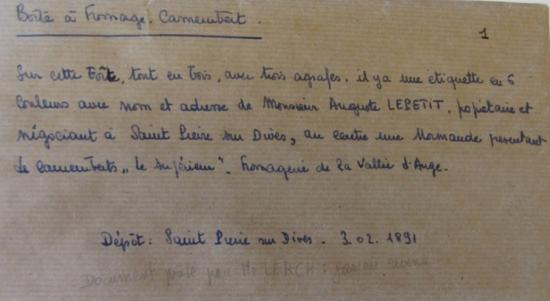 Boîte à Fromage. Camembert.
1
Sur cette boîte, tout en bois, avec trois agrafes. il y a une etiquette en 6
Couleurs avec nom et adresse de Monsieur Auguste LEPETIT, popietaire et
négociant à Saint Pierre sur Dives, au centre une Normande presentant
le camemberts „ le supérieur". Fromagerie de la Vallée d'Auge.
Dépôt: Saint Pierre sur Dives. 3.02.1891
Document prété par Mr LERCH : jamais